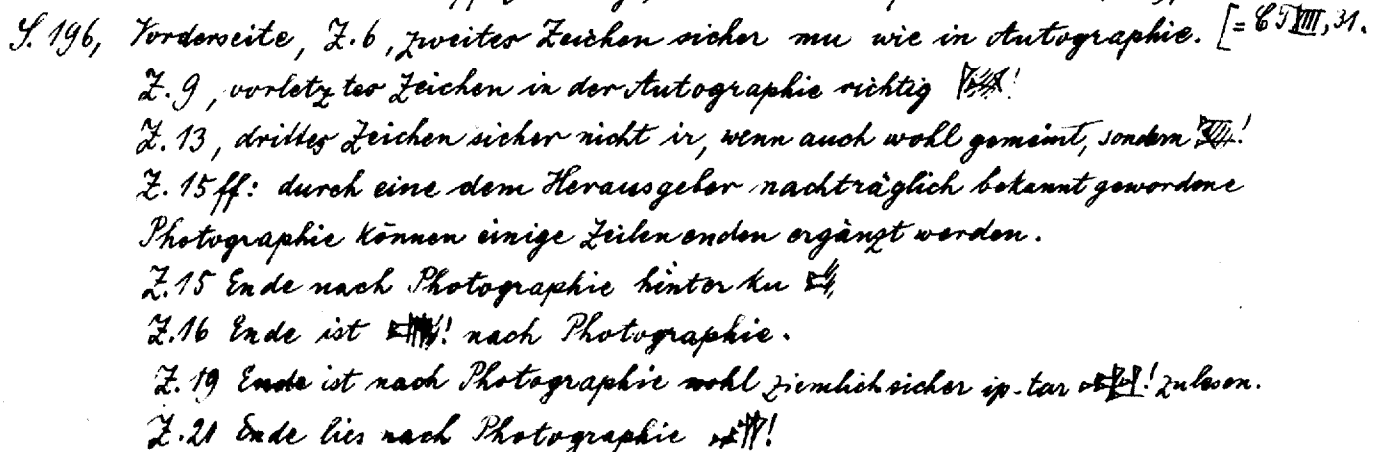 S. 196, Vorderseite, Z. 6, zweites Zeichen sicher mu wie in Autographie. [= CT XIII, 31.
Z. 9, vorletztes Zeichen in der Autographie richtig !
Z. 13, drittes Zeichen sicher nicht ir, wenn auch wohl gemeint, sondern !
Z. 15 ff: durch eine dem Herausgeber nachträglich bekannt gewordene
Photographie können einige Zeilenenden ergänzt werden.
Z. 15 Ende nach Photographie hinter ku
Z. 16 Ende ist ! nach Photographie.
Z. 19 Ende ist nach Photographie wohl ziemlich sicher ip-tar ! zu lesen.
Z. 21 Ende lies nach Photographie !